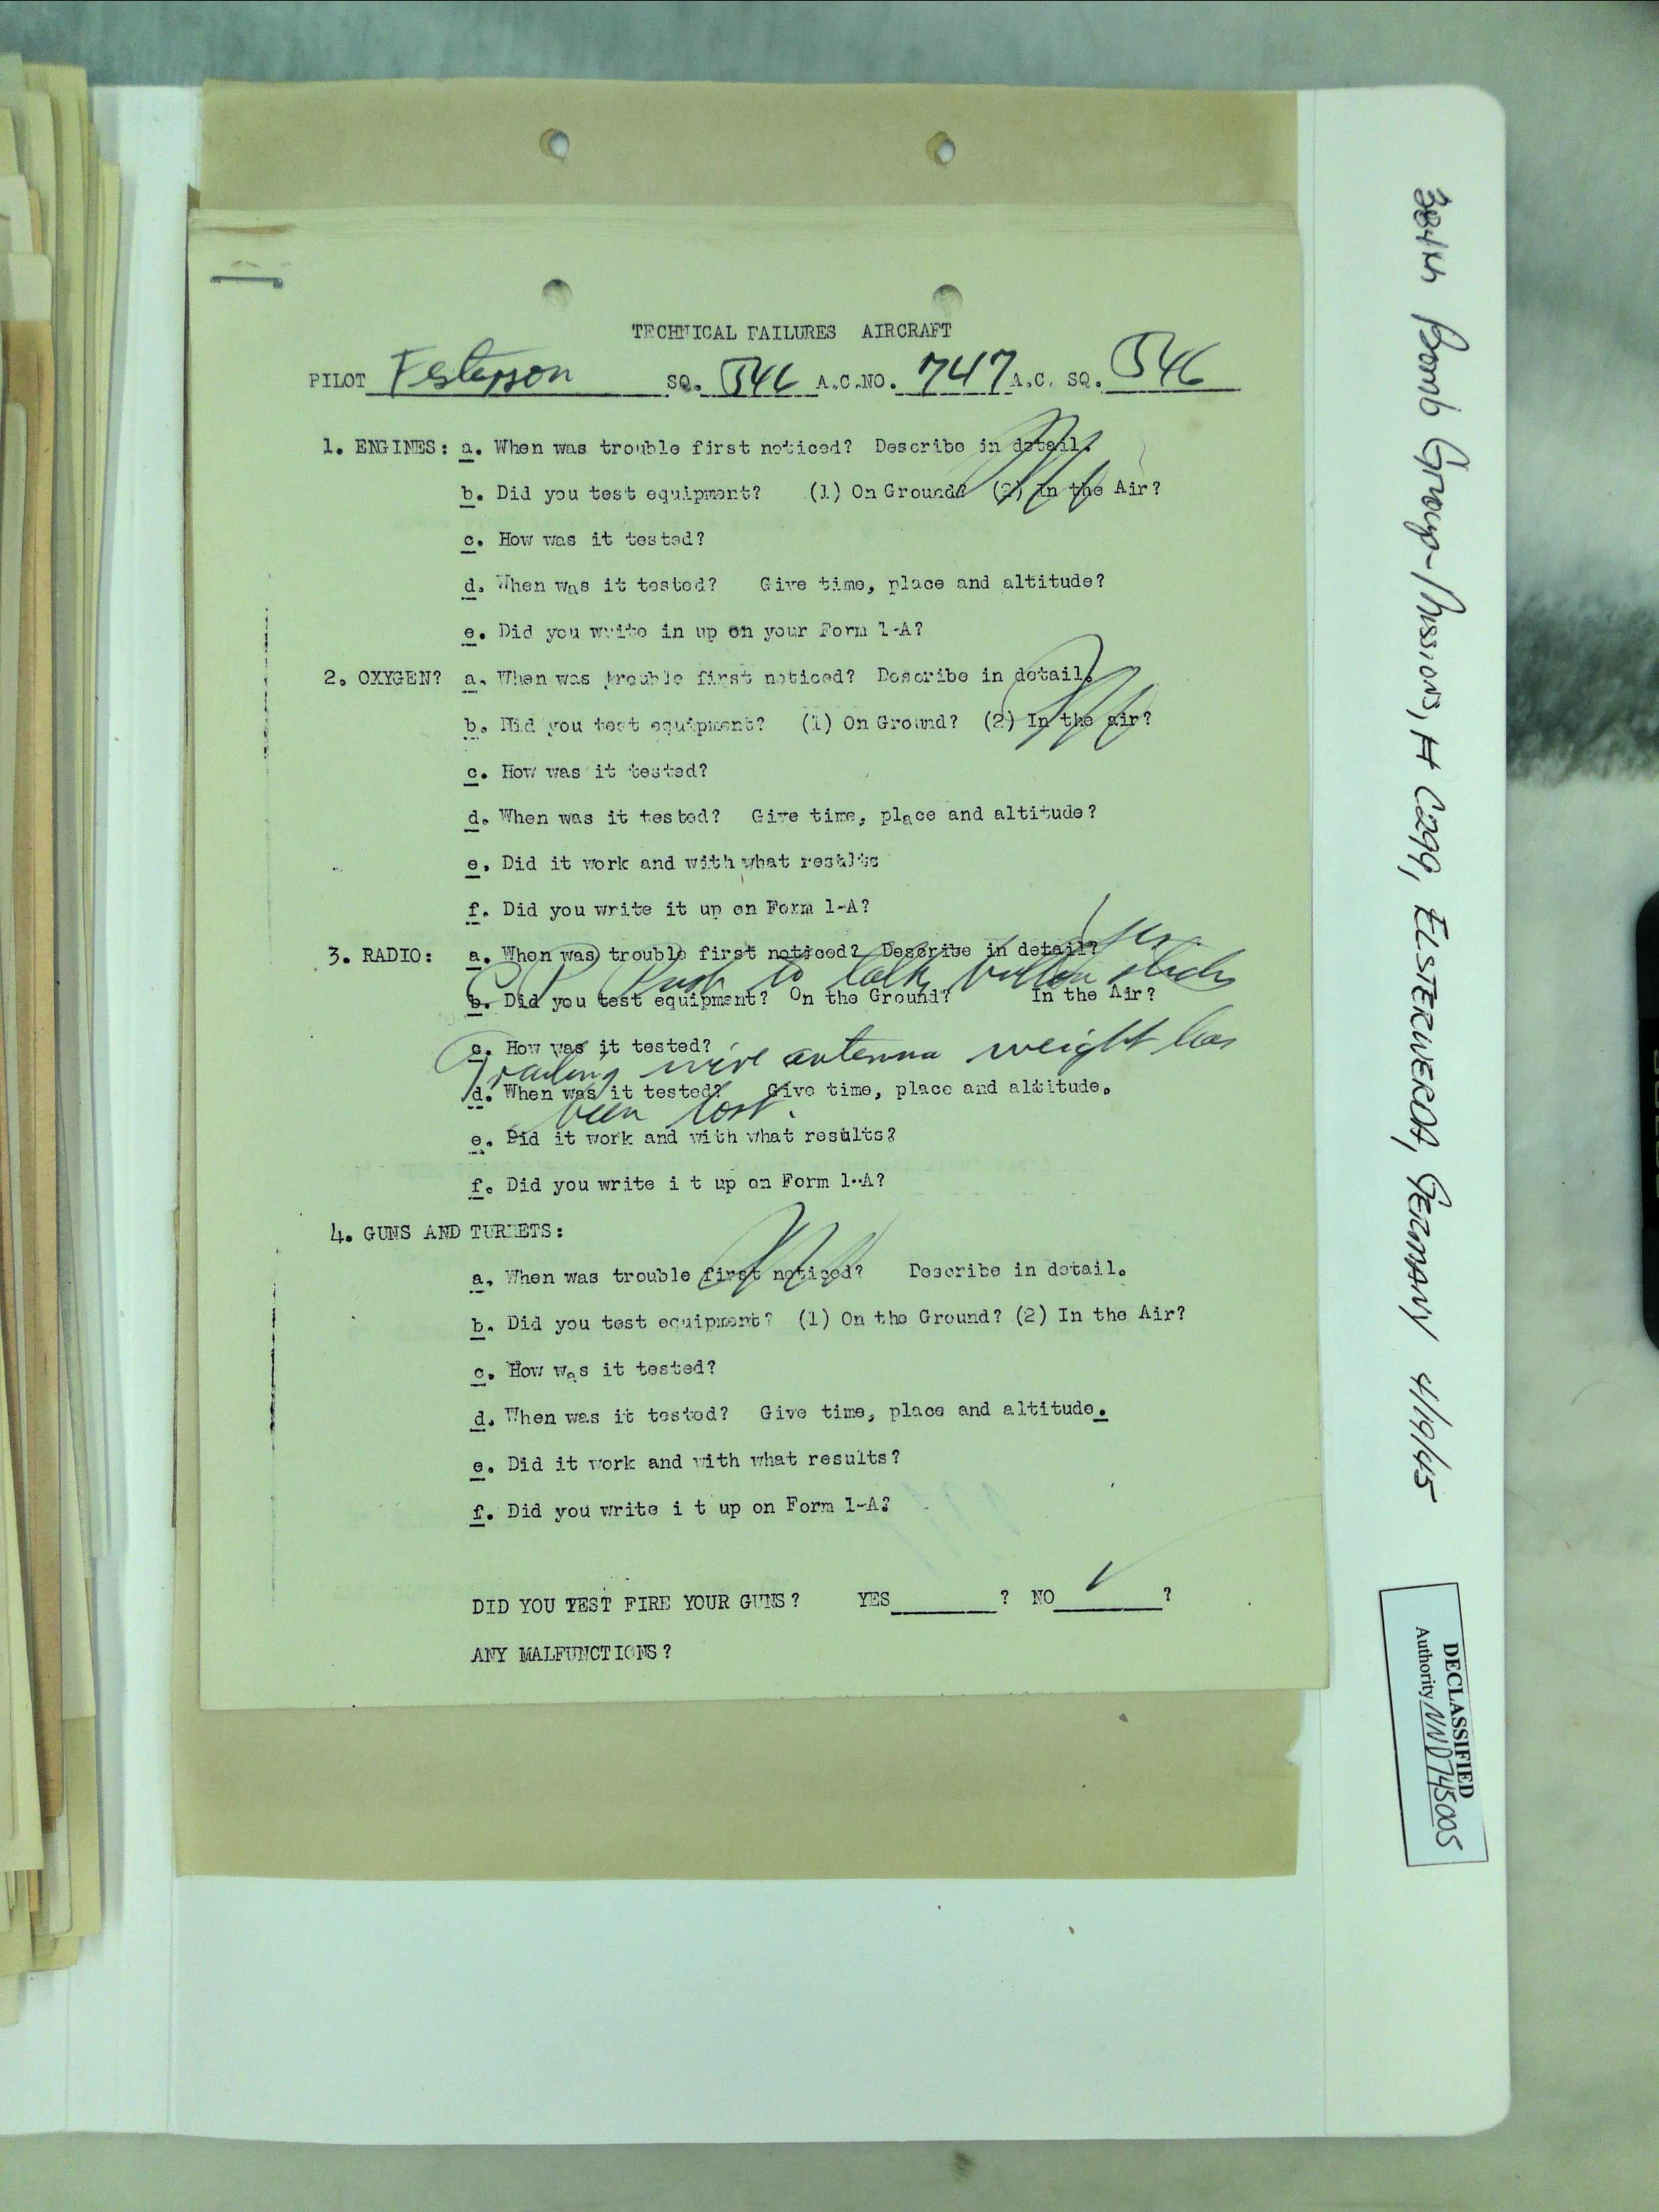 TECHNICAL FAILURES AIRCRAFT
PILOT Festerson SQ. 546 A.C.NO. 747 A.C. SQ. 546
1. ENGINES: a. When was trouble first noticed? Describe in detail.
b. Did you test equipment? (1) On Ground? (2) In the Air?
c. How was it tested?
d. When was it tested? Give time, place and altitude?
e. Did you write in up on your Form 1-A?
2. OXYGEN? a. When was trouble first noticed? Describe in detail?
b. Did you test equipment? (1) On Ground? (2) In the air?
c. How was it tested?
d. When was it tested? Give time, place and altitude?
e. Did it work and with what results
f. Did you write it up on Form 1-A?
3. RADIO: a. When was trouble first noticed? Describe in detail?
CP Push to talk button sticks
b. Did you test equipment? On the Ground? In the Air?
c. How was it tested?
Trailing wire antenna weight has
d. When was it tested? Give time, place and altitude.
been lost.
e. Did it work and with what results?
f. Did you write i t up on Form 1-A?
4. GUNS AND TURRETS:
a. When was trouble first noticed? Describe in detail.
b. Did you test equipment? (1) On the Ground? (2) In the Air?
c. How was it tested?
d. When was it tested? Give time, place and altitude.
e. Did it work and with what results?
f. Did you write i t up on Form 1-A?
DID YOU TEST FIRE YOUR GUNS? YES ? NO ✓ ?
ANY MALFUNCTIONS?
384th Bomb Group-Mission, # C299, ELSTERWERDA, GERMANY 4/19/45
DECLASSIFIED
Authority NND745005